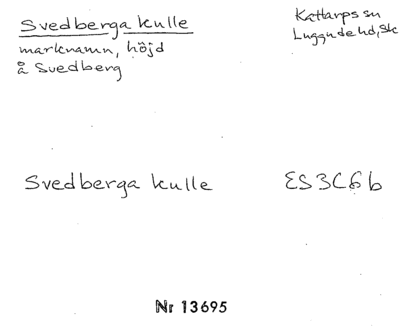 Svedberga kulle
marknamn, höjd
å Svedberg
Kattarps sn
Luggude hd, Sk
Svedberga kulle
ES3C6b
Nr 13695